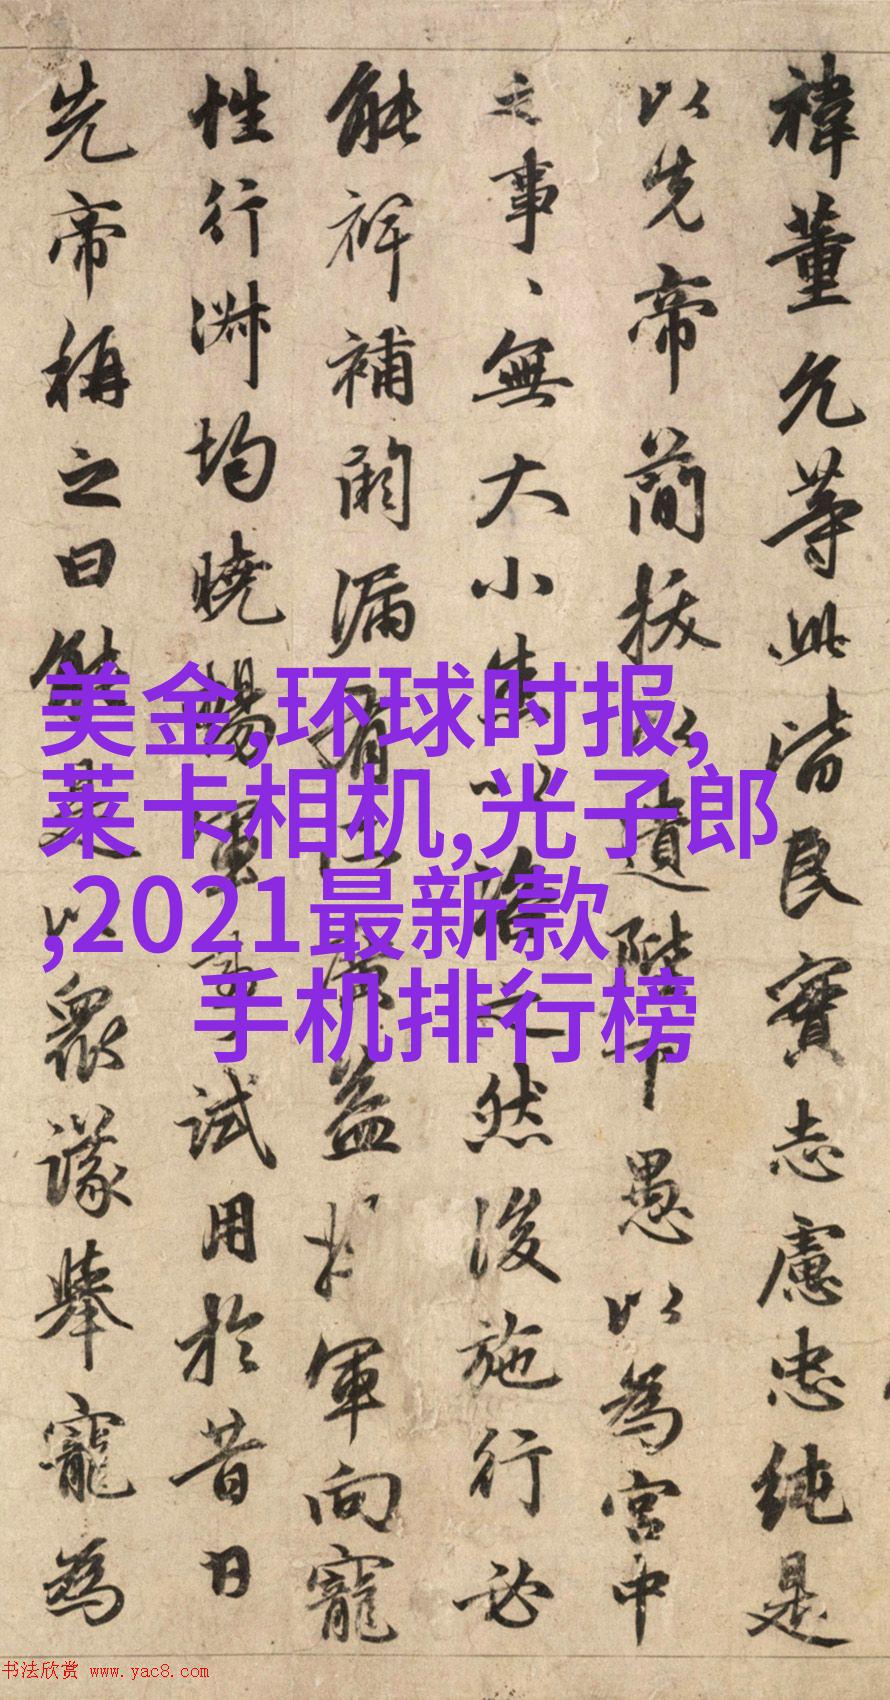 禕董允等此皆良實志慮忠純是
以先帝簡拔以遺陛下愚以為宮中
之事、無大小悉以諮之然後施行必
能裨補闕漏有廣益將軍向寵
性行淑均曉暢軍事試用於昔日
先帝稱之曰能是以衆議舉寵為
美金,环球时报,
莱卡相机,光子郎
,2021最新款
手机排行榜
书法欣赏 www.yac8.com